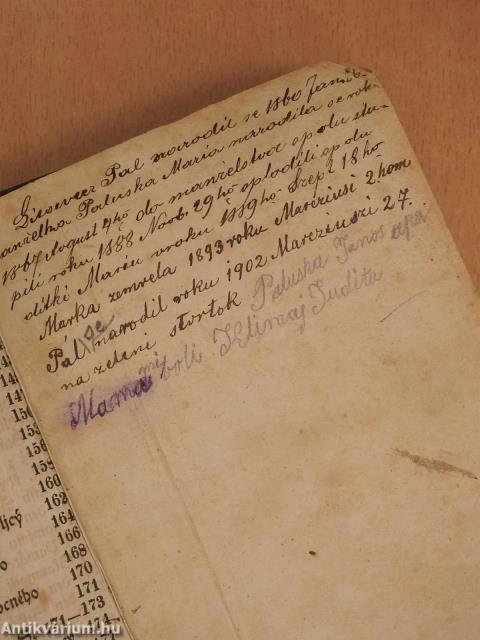 Litavecz Pál narodil se 1860 Jan. 26.
manželka Paluska Maria narodila se roku
1867 August 4ho do manželstva spolu stu-
pili roku 1888 Novb. 29ho splodili spolu
dítki Mariu vroku 1889ho Szept 18ho
Márka zemrela 1893 roku Marcziusi 2hom
Pál se narodil roku 1902 Marcziusi 27.
na zeleni stvrtok Paluska János apa
Mama mi boli Klimaj Judita
149
15
15
158
159
160
162
164
166
168
170
171
71—173
174
licý
o
ocného
Antikvárium.hu